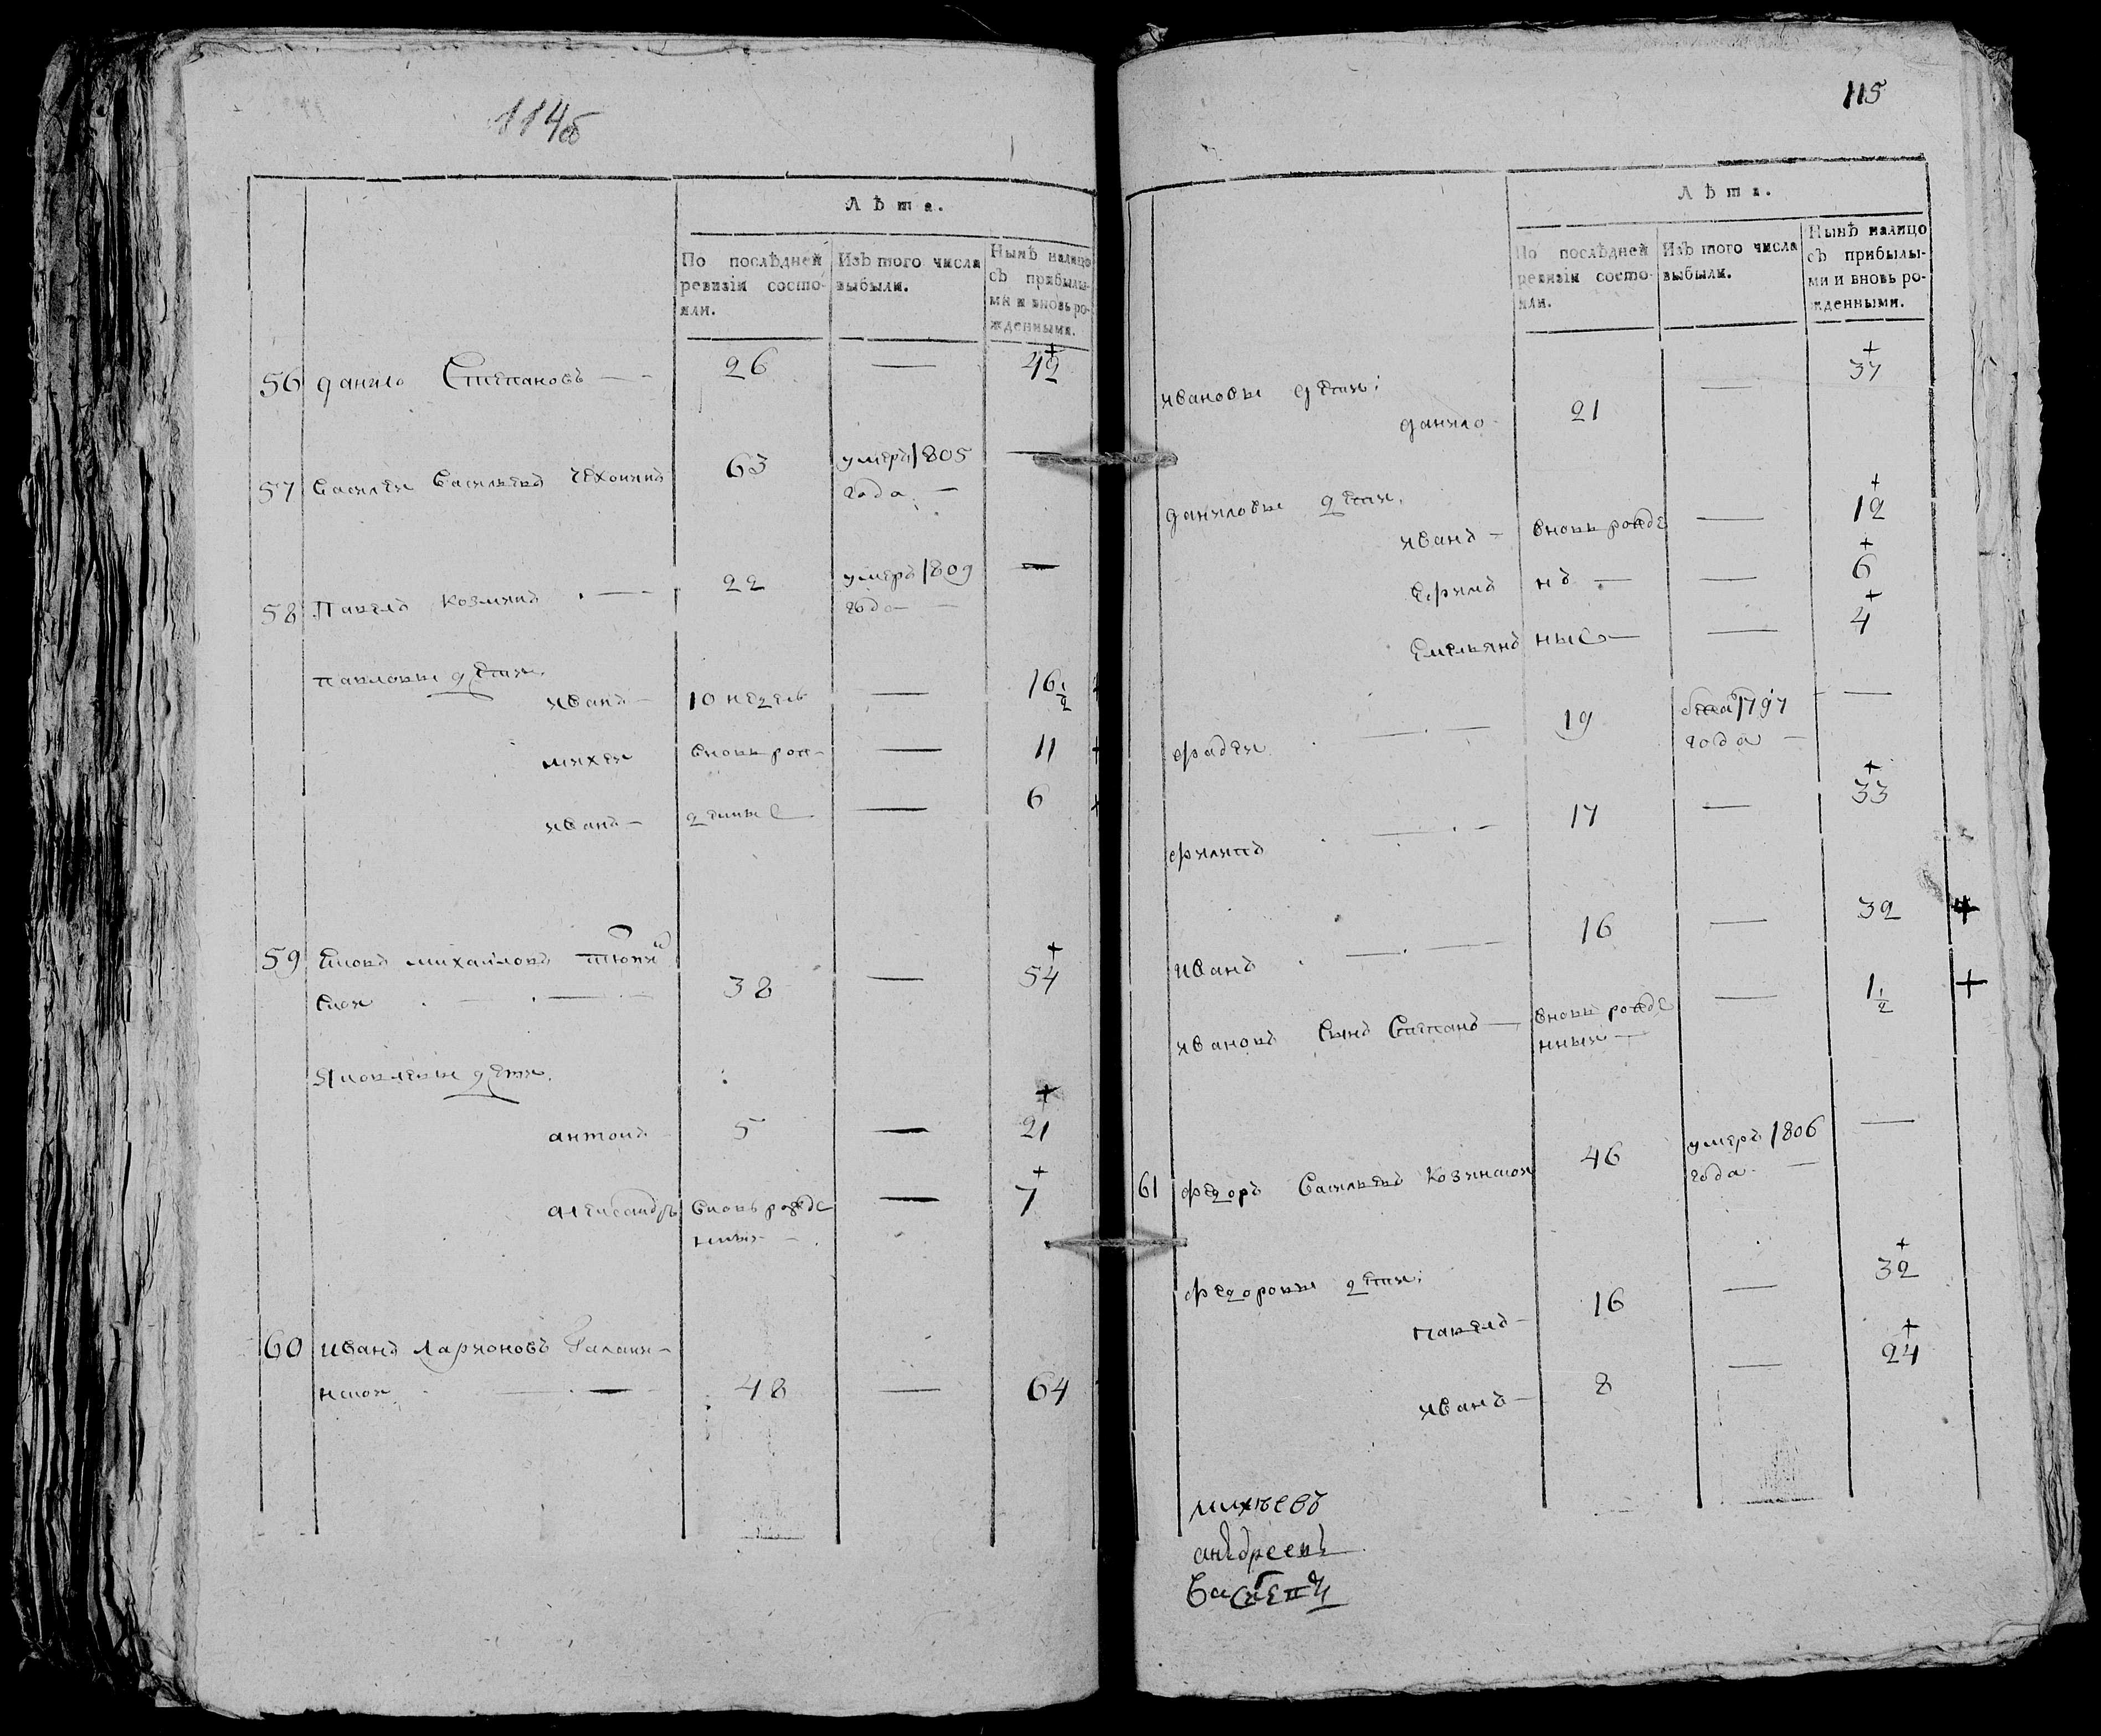 114об
Лѣта.
По послѣдней ревизіи состояли.
Изъ того числа выбыли.
Нынѣ налицо съ прибылыми и вновь рожденными.
56 данило Степановъ — 26 — 42 +
57 Василеи Васильевъ чехонинъ 63 умеръ 1805 года —
58 Павелъ козминъ 22 умеръ 1809 года —
павловы дѣти.
иванъ 10 недель — 16 1/2
михеи вновь рож- — 11 +
иванъ денные — 6 +
59 Яковъ михаиловъ
38 — 54 +
Яковлевы дѣти.
антонъ 5 — 21 +
александръ вновь рожде — 7 +
нныи
60 иванъ Ларионовъ Галани-
нской 48 — 64
115
Лѣта.
По послѣдней ревизіи состояли.
Изъ того числа выбыли.
Нынѣ налицо съ прибылыми и вновь рожденными.
ивановы дѣти;
данило 21 — 37 +
даниловы дѣти.
иванъ вновь рожде — 12 +
ефимъ нъ — 6 +
Емельянъ ные — 4 +
фадеи 19 1797 года —
филипъ 17 — 33 +
иванъ 16 — 32 +
ивановъ Сынъ Степанъ вновь рожде — 1 1/2 +
нныи
61 федоръ Васильевъ козинской 46 умеръ 1806 года —
федоровы дѣти;
павелъ 16 — 32 +
иванъ 8 — 24 +
михѣевъ
андреевъ